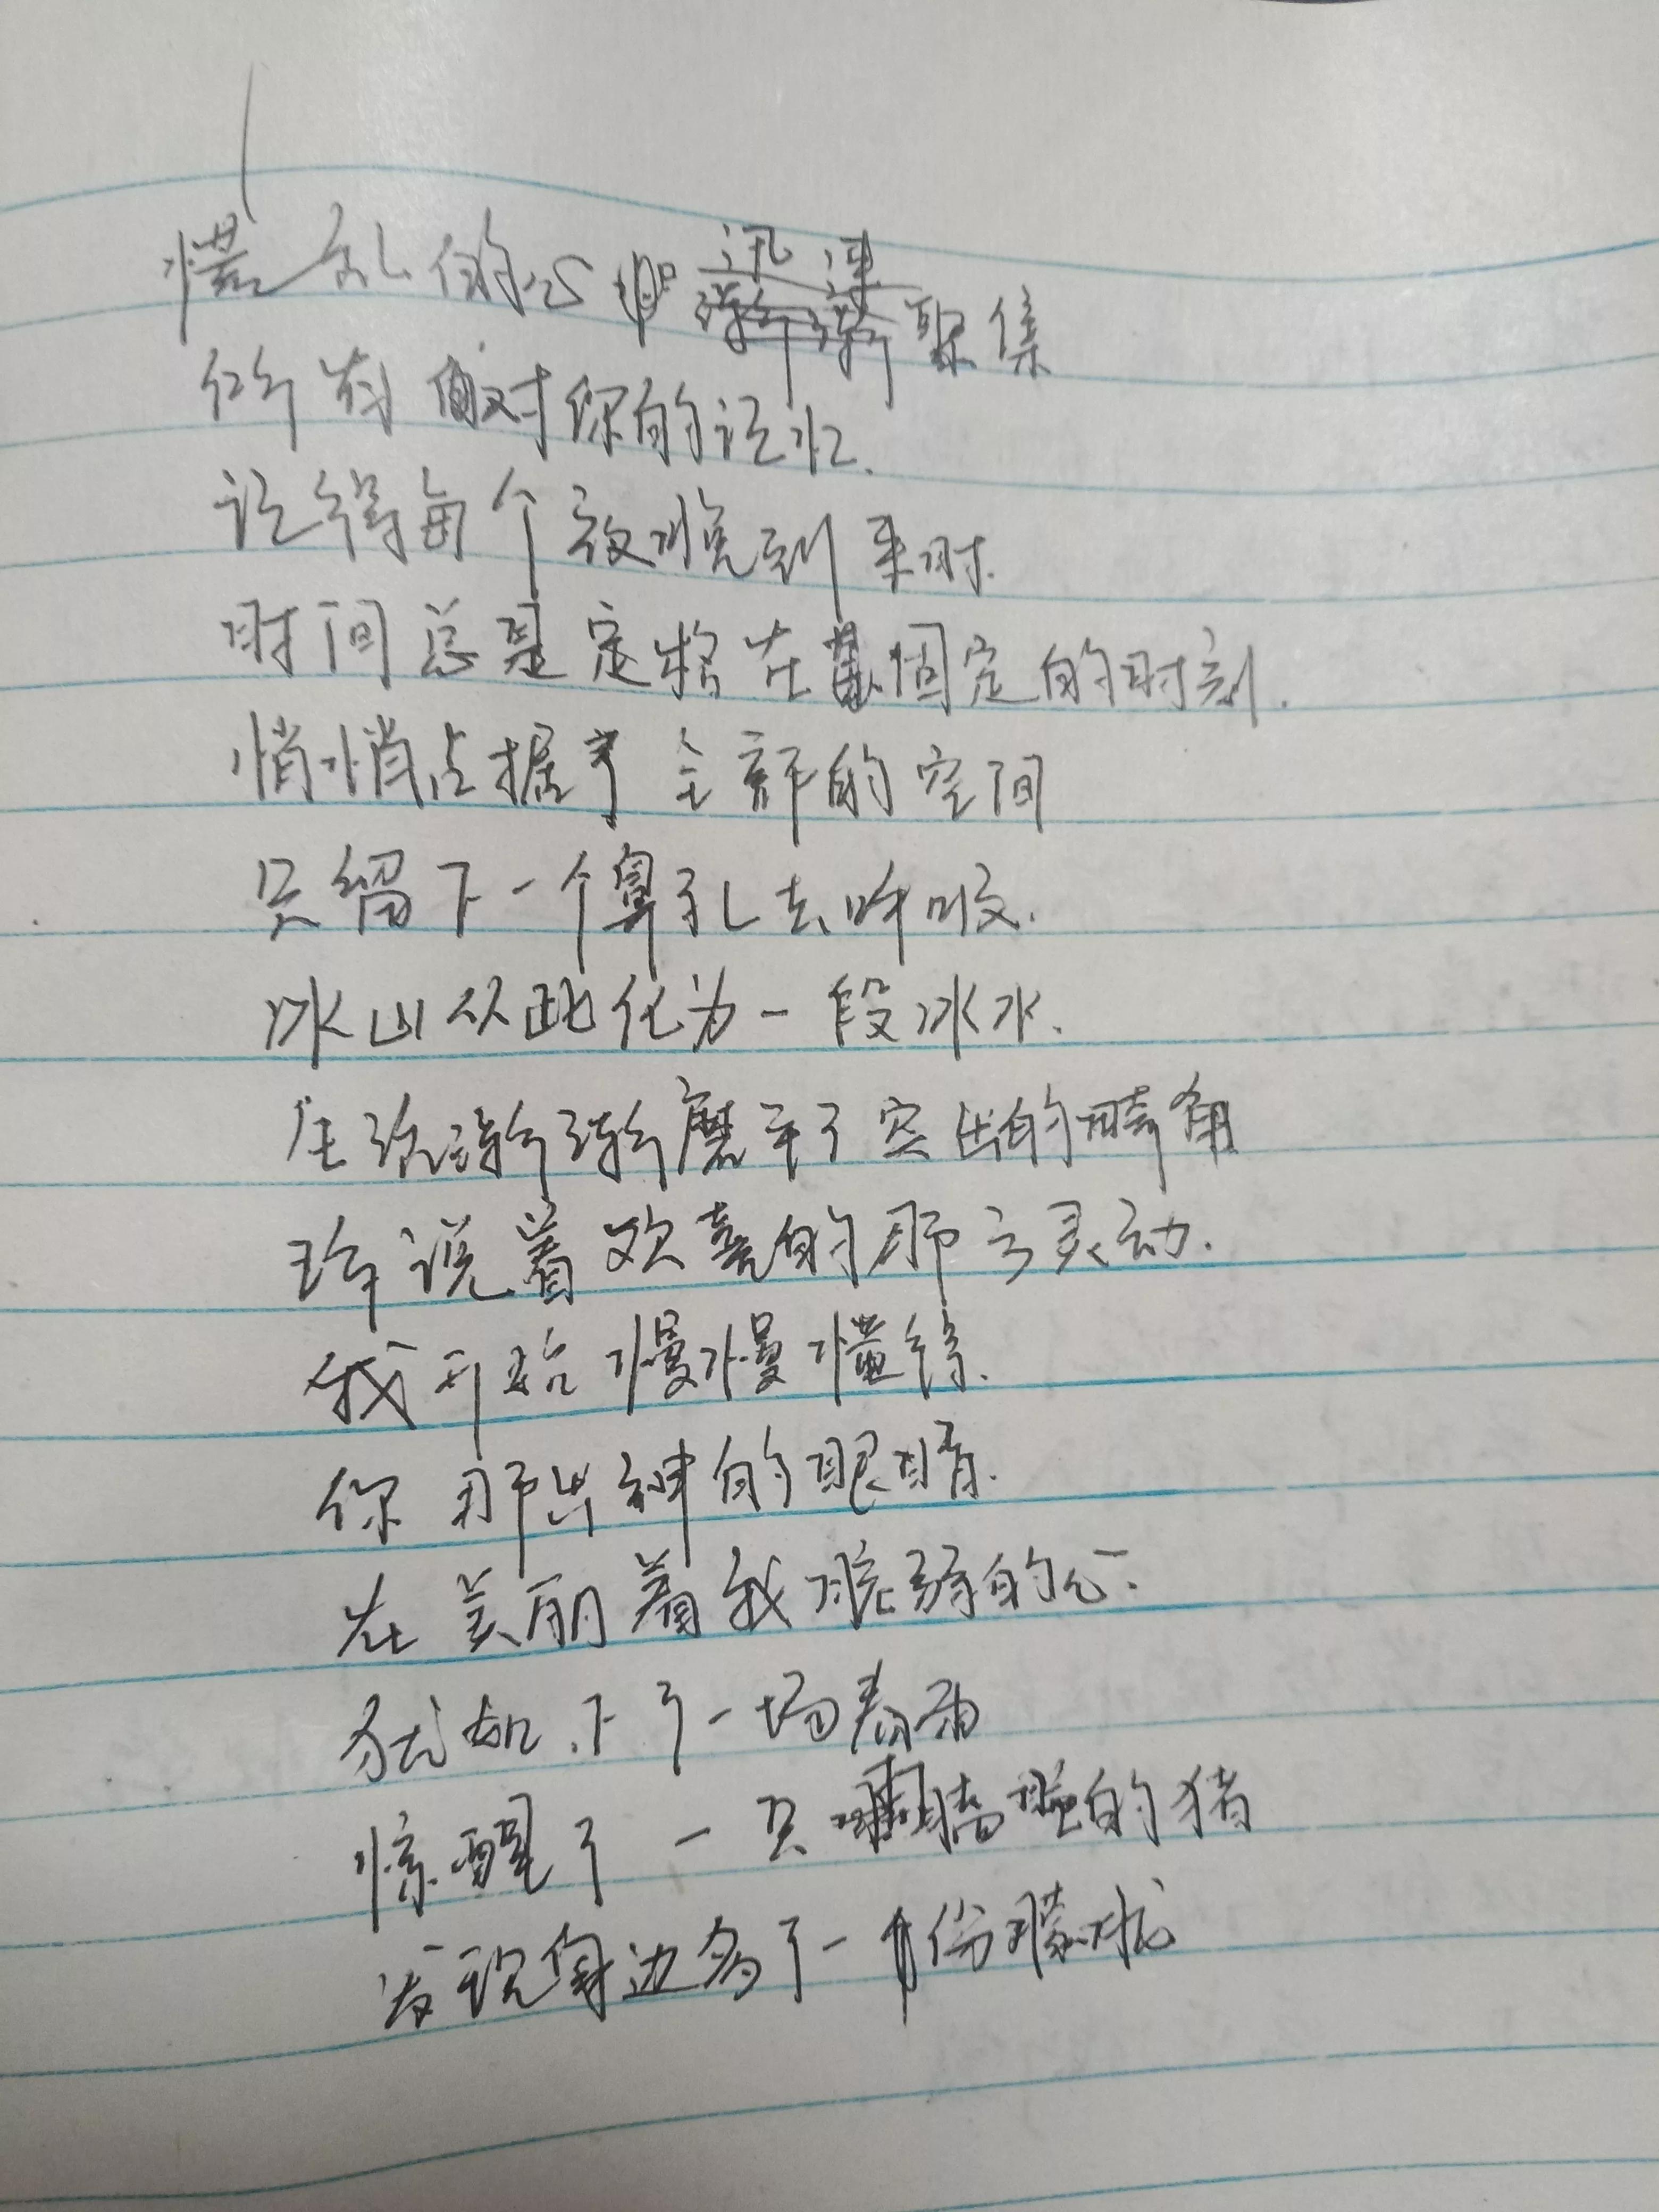 慌乱的心中迅速聚集
所有面对你的记忆.
记得每个夜晚到来时.
时间总是定格在固定的时刻.
悄悄占据了全部的空间
只留下一个鼻孔去呼吸.
冰山从此化为一段冰水.
生活渐渐磨平了突出的畸角
诠说着欢喜的那么灵动.
我开始慢慢懂得.
你那出神的眼睛.
在美丽着我脆弱的心.
犹如下了一场春雨
惊醒了一只瞌睡的猪
发现身边多了一份朦胧